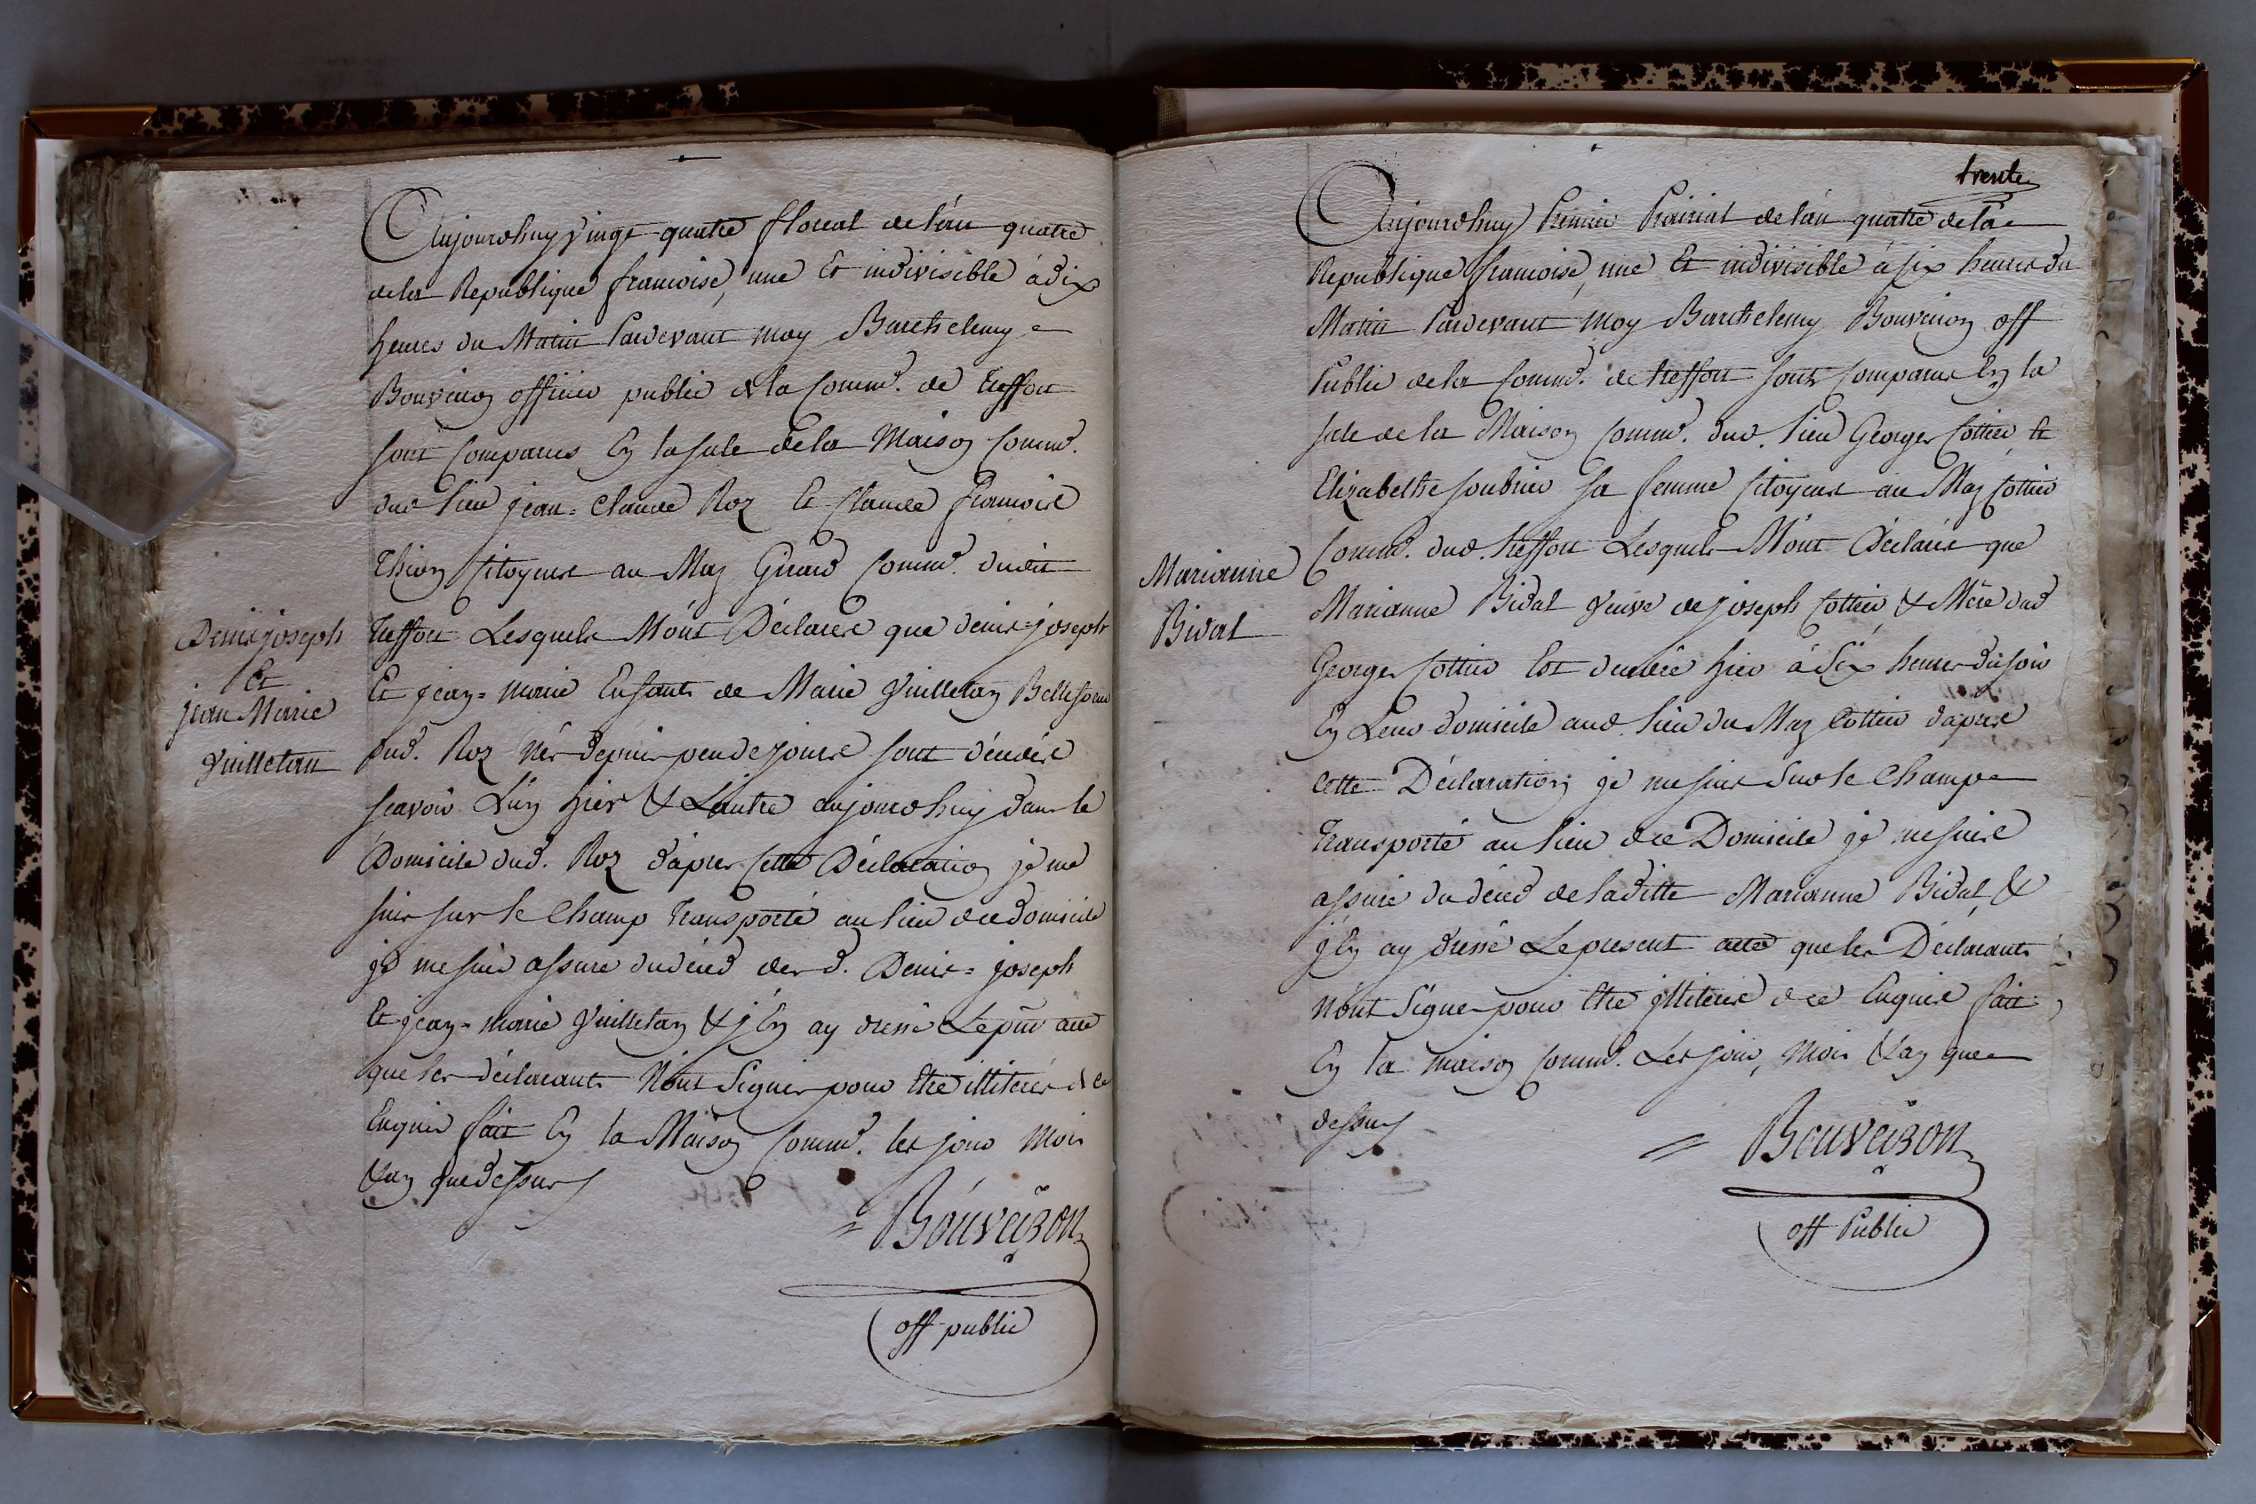 Aujourdhuy vingt quatre floreal de l'an quatre
de la Republique francoise, une Et indivisible à dix
heures du Matin Pardevant moy Barthelemy
Bouveiron officier public de la Comm.^e de treffort
sont Comparus En la sale de la Maison Comm.^e
dud lieu jean=Claude Roz Et Claude francois
Thion Citoyens au Maz Girard Comm.^e dudit
Denis joseph
Et
jean Marie
Vuilletan
treffort Lesquels M'ont Déclarés que denis=joseph
Et jean=marie Enfants de Marie Vuilletan Bellesoeur
dud. Roz nés depuis peu de jours sont décédés
scavoir L'un hier & L'autre aujourdhuy dans le
Domicile dud. Roz d'après cette Déclaration je me
suis sur le Champ transporté au lieu de ce domicile
je me suis assuré du décéd desd. Denis=joseph
Et jean=marie Vuilletan & j'En ay dressé Le pnt acte
que les déclarants N'ont Signés pour être illiterés de ce
Enquis fait En la Maison Comm.^e les jour mois
& an que dessus
Bouveiron
off public
trente
Aujourdhuy Premier Prairial de l'an quatre de la
Republique francoise, une Et indivisible à six heures du
Matin Pardevant moy Barthelemy Bouveiron off
Public de la Comm.^e de treffort sont Comparus En la
sale de la Maison Comm.^e dud. lieu George Cottier Et
Elizabethe soubrier sa femme Citoyens au Maz Cottier
Comm.^e dud. treffort Lesquels M'ont Déclarés que
Marianne
Bidal
Marianne Bidal veuve de joseph Cottier, & Mère dud
George Cottier Est décédée hier à Six heures du soir
En Leur domicile aud. lieu du Maz Cottier d'après
Cette Déclaration je me suis sur le Champ
transporté au lieu de ce Domicile je me suis
assuré du décéd de laditte Marianne Bidal, &
j'En ay dressé Le présent acte que les Déclarants
N'ont Signés pour être illiterés de ce Enquis fait
En la maison Comm.^e Les jour, mois & an que
dessus
Bouveiron
off Public